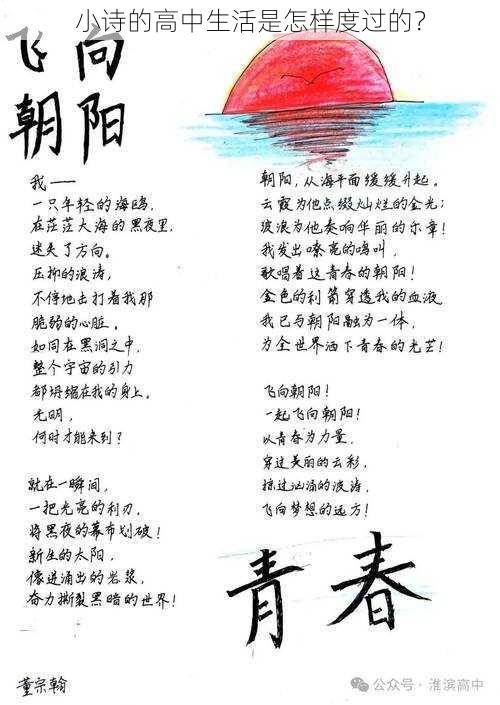 小诗的高中生活是怎样度过的？
飞向
朝阳
我——
一只年轻的海鸥，
在茫茫大海的黑夜里，
迷失了方向。
压抑的浪涛，
不停地击打着我那
脆弱的心脏。
如同在黑洞之中，
整个宇宙的引力
都坍缩在我的身上。
光明，
何时才能来到？
就在一瞬间，
一把光亮的利刃，
将黑夜的幕布划破！
新生的太阳，
像迸涌出的岩浆，
奋力撕裂黑暗的世界！
朝阳，从海平面缓缓升起。
云霞为他点缀灿烂的金光；
波浪为他奏响华丽的乐章！
我发出嘹亮的鸣叫，
歌唱着这青春的朝阳！
金色的利箭穿透我的血液
我已与朝阳融为一体，
为全世界洒下青春的光芒！
飞向朝阳！
一起飞向朝阳！
以青春为力量，
穿过美丽的云彩，
掠过汹涌的波涛，
飞向梦想的远方！
青春
董宗翰
公众号·淮滨高中